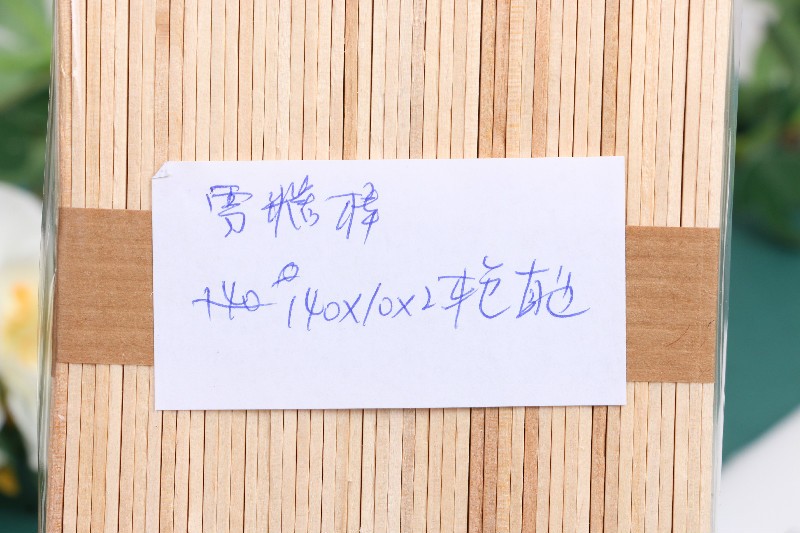 雪糕棒
140 140X10X2平色直边